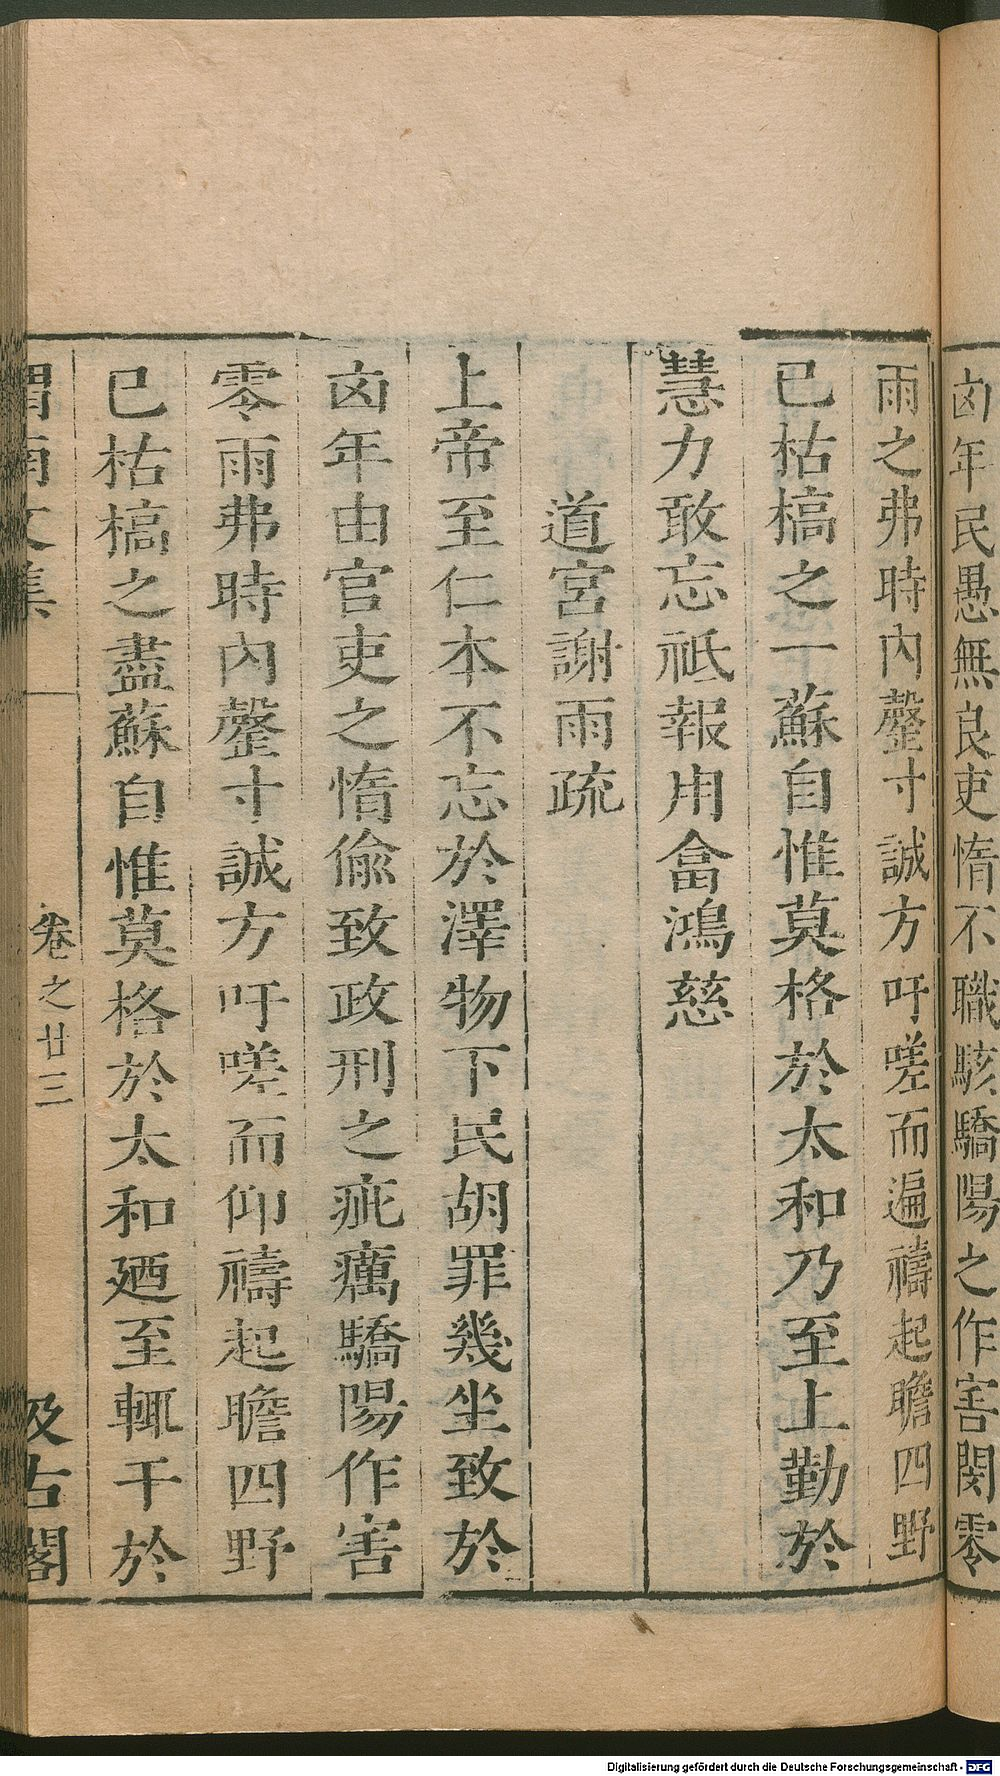 凶年民愚無良吏惰不職駭驕陽之作害閔零
雨之弗時內罄寸誠方吁嗟而遍禱起瞻四野
已枯槁之一蘇自惟莫格於太和乃至上勤於
慧力敢忘祗報用畣鴻慈
道宮謝雨疏
上帝至仁本不忘於澤物下民胡罪幾坐致於
凶年由官吏之惰偷致政刑之疵癘驕陽作害
零雨弗時內罄寸誠方吁嗟而仰禱起瞻四野
已枯槁之盡蘇自惟莫格於太和廼至輒干於
渭南文集
卷之廿三
汲古閣
Digitalisierung gefördert durch die Deutsche Forschungsgemeinschaft - DFG